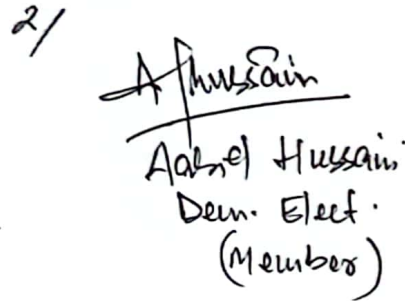 2/
A Hussain
Hussain
Dem. Elect.
(Member)